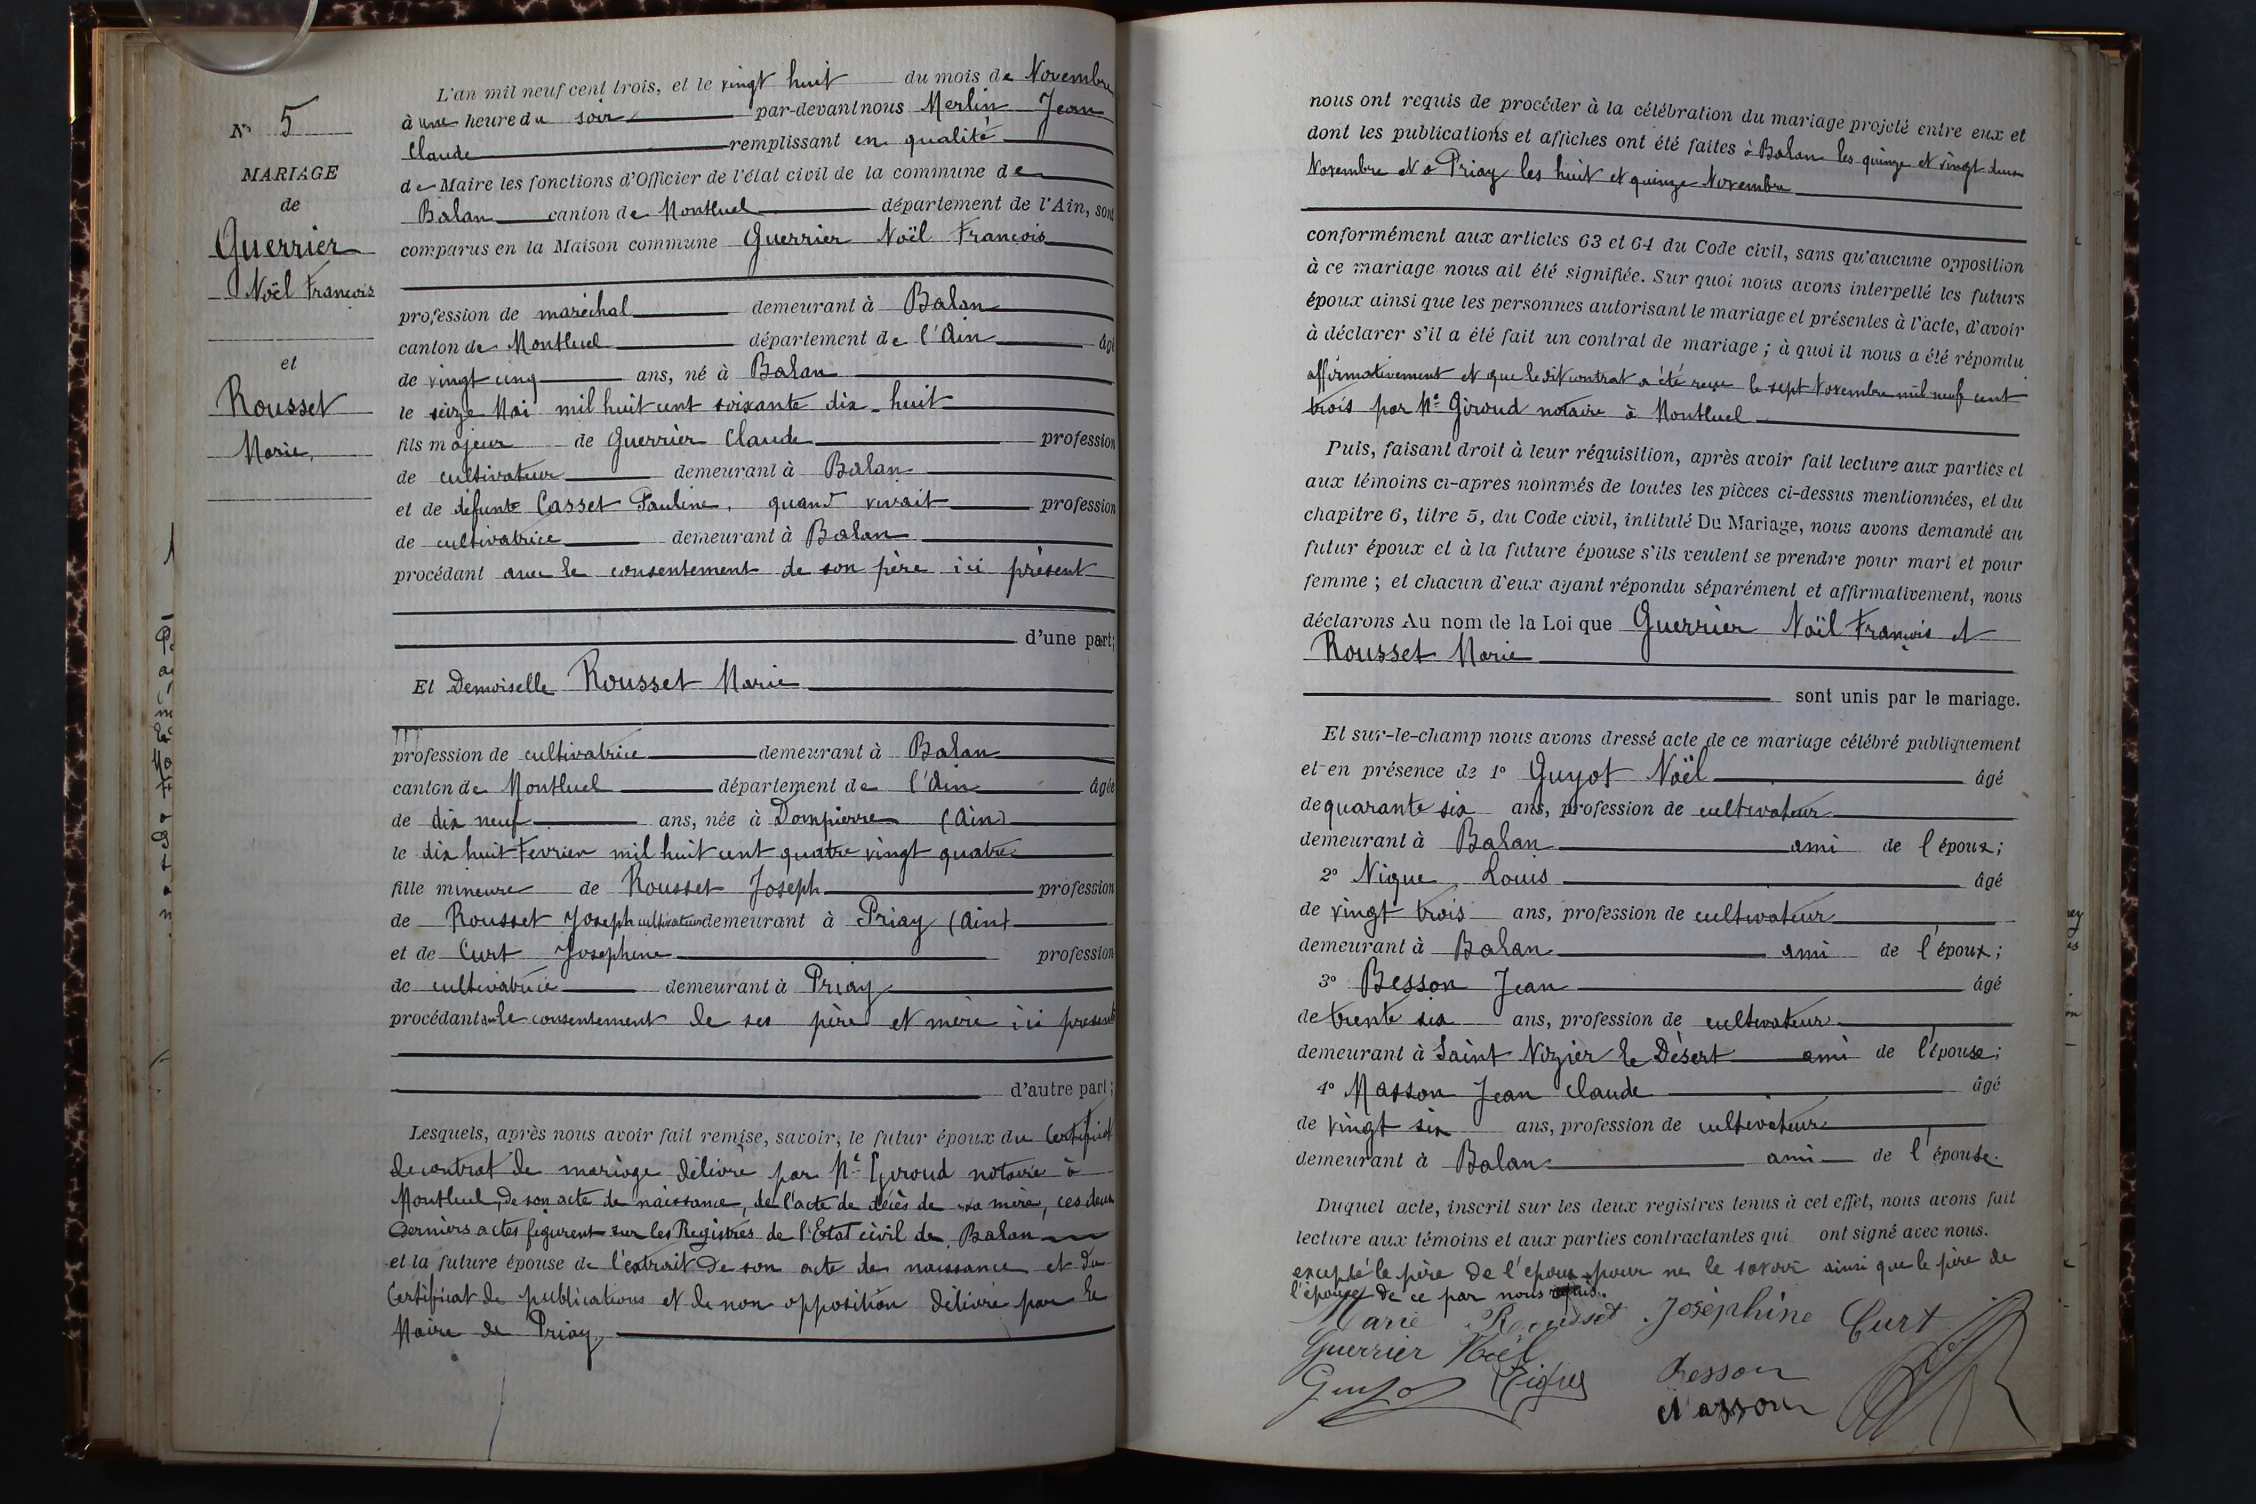 N° 5
MARIAGE
de
Guerrier
Noël François
et
Rousset
Marie
L'an mil neuf cent trois, et le vingt huit du mois de Novembre
à une heure du soir par-devant nous Merlin Jean
Claude remplissant en qualité
de Maire les fonctions d'Officier de l'état civil de la commune de
Balan canton de Montluel département de l'Ain, sont
comparus en la Maison commune Guerrier Noël François
profession de maréchal demeurant à Balan
canton de Montluel département de l'Ain âgé
de vingt cinq ans, né à Balan
le seize Mai mil huit cent soixante dix-huit
fils majeur de Guerrier Claude profession
de cultivateur demeurant à Balan
et de défunte Casset Pauline, quand vivait profession
de cultivatrice demeurant à Balan
procédant avec le consentement de son père ici présent
d'une part;
Et Demoiselle Rousset Marie
profession de cultivatrice demeurant à Balan
canton de Montluel département de l'Ain âgée
de dix neuf ans, née à Dompierre (Ain)
le dix huit Fevrier mil huit cent quatre vingt quatre
fille mineure de Rousset Joseph profession
de Rousset Joseph cultivateur demeurant à Priay (Ain)
et de Curt Josephine profession
de cultivatrice demeurant à Priay
procédant avec le consentement de ses père et mère ici présents
d'autre part;
Lesquels, après nous avoir fait remise, savoir, le futur époux du Certificat
de contrat de mariage délivré par Me Giroud notaire à
Montluel, de son acte de naissance, de l'acte de décès de sa mère, ces deux
derniers actes figurent sur les Registres de l'Etat civil de Balan
et la future épouse de l'extrait de son acte de naissance et du
Certificat de publications et de non opposition délivré par le
Maire de Priay
nous ont requis de procéder à la célébration du mariage projeté entre eux et
dont les publications et affiches ont été faites à Balan les quinze et vingt deux
Novembre et à Priay les huit et quinze Novembre
conformément aux articles 63 et 64 du Code civil, sans qu'aucune opposition
à ce mariage nous ait été signifiée. Sur quoi nous avons interpellé les futurs
époux ainsi que les personnes autorisant le mariage et présentes à l'acte, d'avoir
à déclarer s'il a été fait un contrat de mariage; à quoi il nous a été répondu
affirmativement et que ledit contrat a été reçu le sept Novembre mil neuf cent
trois par Me Giroud notaire à Montluel
Puis, faisant droit à leur réquisition, après avoir fait lecture aux parties et
aux témoins ci-après nommés de toutes les pièces ci-dessus mentionnées, et du
chapitre 6, titre 5, du Code civil, intitulé Du Mariage, nous avons demandé au
futur époux et à la future épouse s'ils veulent se prendre pour mari et pour
femme; et chacun d'eux ayant répondu séparément et affirmativement, nous
déclarons Au nom de la Loi que Guerrier Noël François et
Rousset Marie
sont unis par le mariage.
Et sur-le-champ nous avons dressé acte de ce mariage célébré publiquement
et en présence de 1° Guyot Noël âgé
de quarante six ans, profession de cultivateur
demeurant à Balan ami de l'époux;
2° Nigue Louis âgé
de vingt trois ans, profession de cultivateur
demeurant à Balan ami de l'époux;
3° Besson Jean âgé
de trente six ans, profession de cultivateur
demeurant à Saint Nizier le Désert ami de l'épouse;
4° Masson Jean Claude âgé
de vingt six ans, profession de cultivateur
demeurant à Balan ami de l'épouse.
Duquel acte, inscrit sur les deux registres tenus à cet effet, nous avons fait
lecture aux témoins et aux parties contractantes qui ont signé avec nous.
excepté le père de l'époux pour ne le savoir ainsi que le père de
l'épouse de ce par nous requis.
Marie Rousset Joséphine Curt
Guerrier Noël
Guyot Nigue Besson
Masson